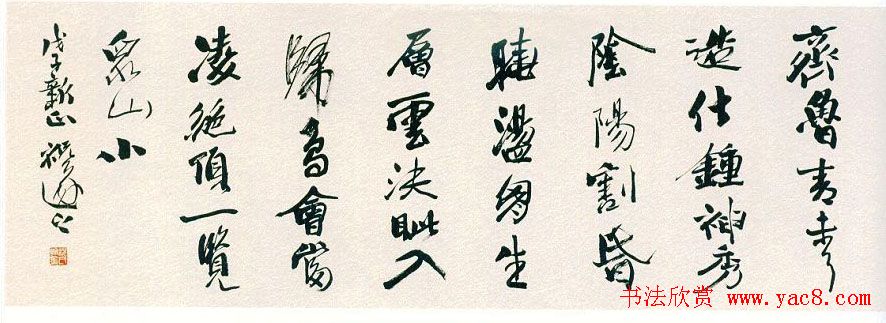 齊魯青未了
造化鍾神秀
陰陽割昏
曉盪胸生
層雲決眦入
歸鳥會當
凌絕頂一覽
衆山小
戊子新正
书法欣赏 www.yac8.com